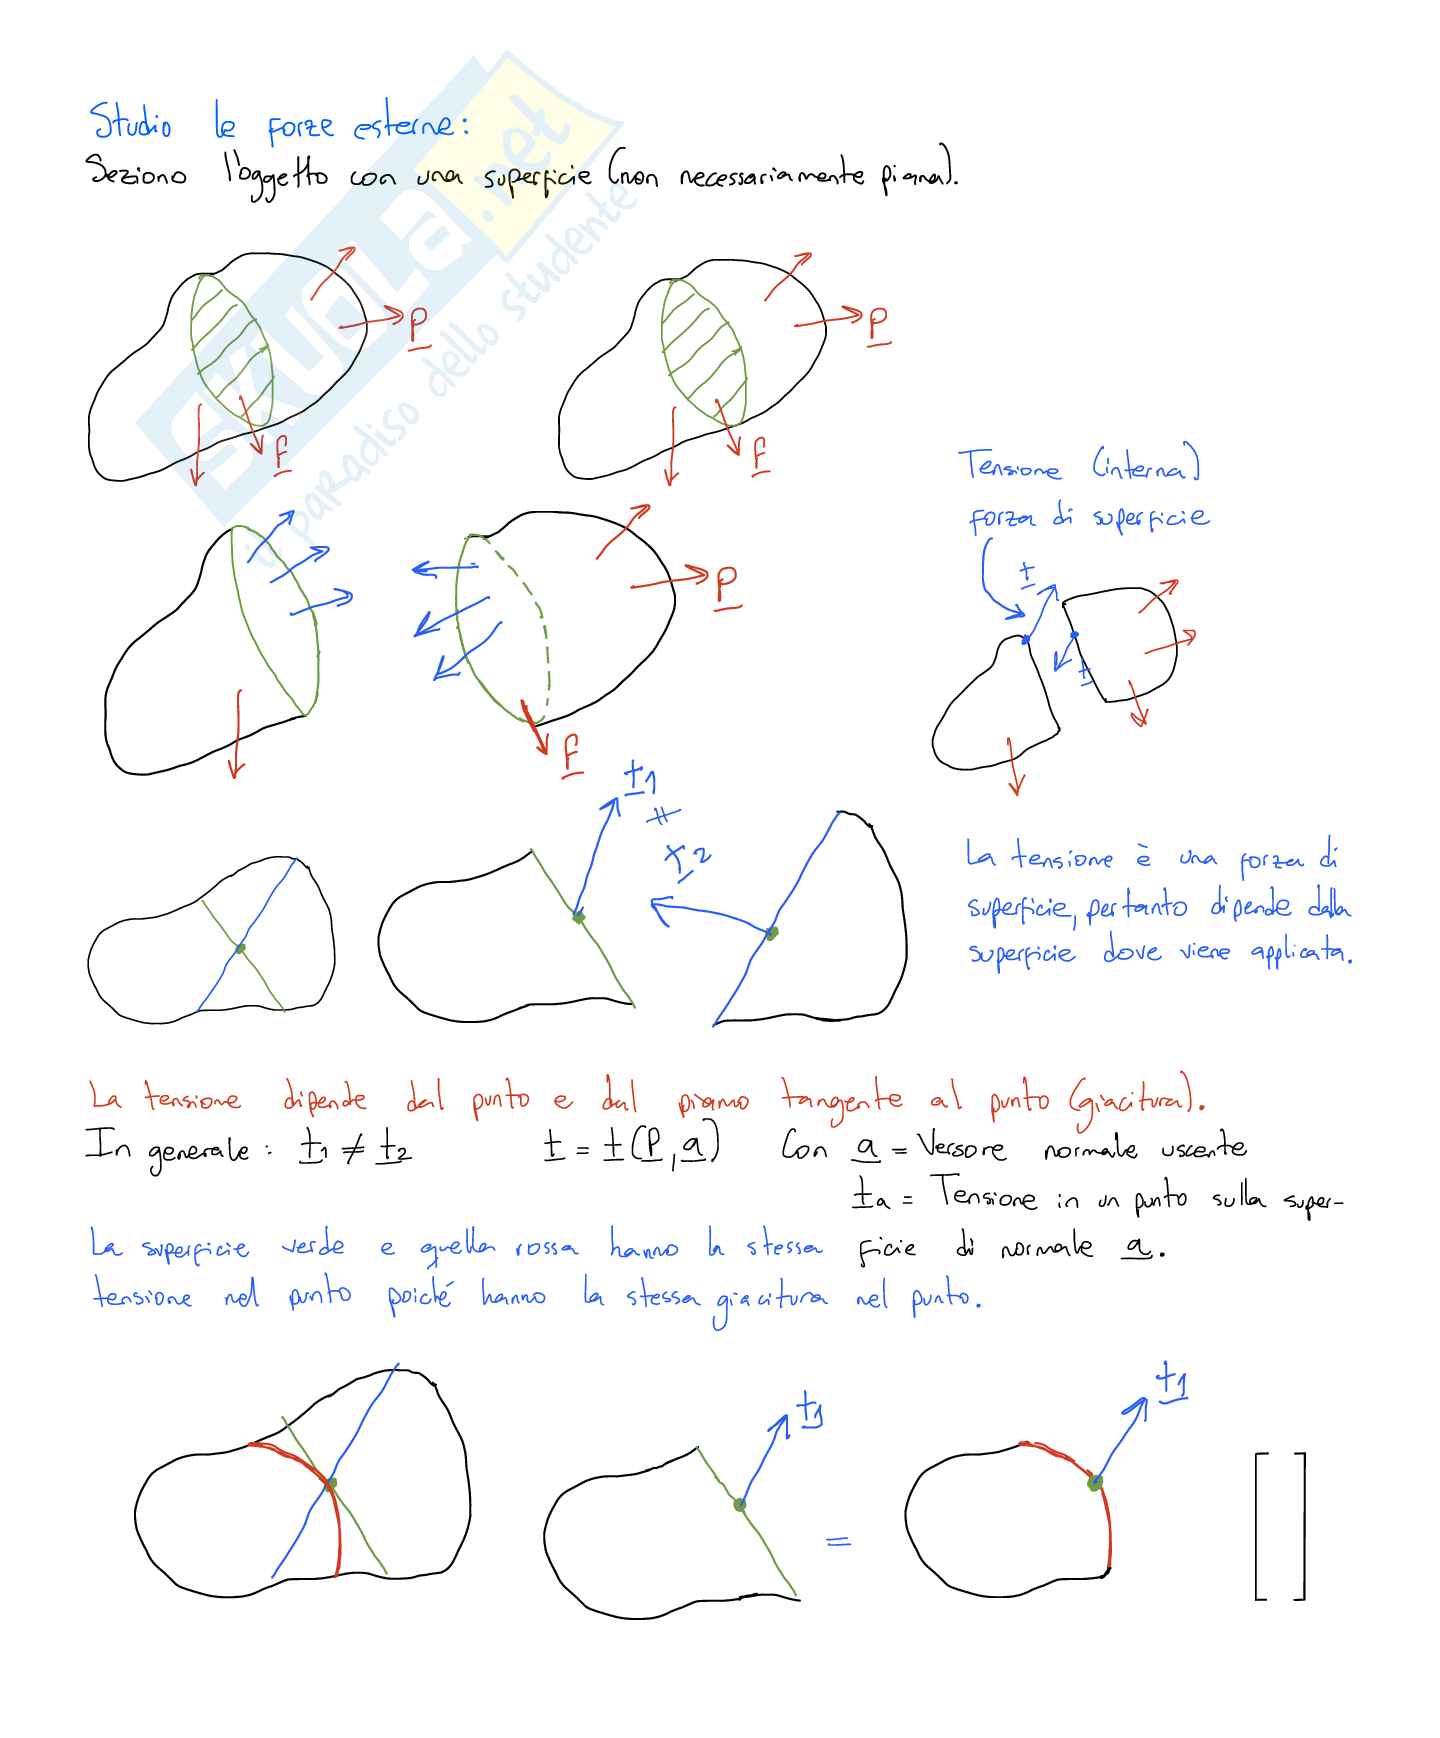 Studio le forze esterne:
Seziono l'oggetto con una superficie (non necessariamente piana).
SKUOLA.net
il paradiso dello studente
P
P
f
f
Tensione (interna)
forza di superficie
t
t
P
f
t1
≠
t2
La tensione è una forza di
superficie, pertanto dipende dalla
superficie dove viene applicata.
La tensione dipende dal punto e dal piano tangente al punto (giacitura).
In generale: t1 ≠ t2 t = t(P, a) Con a = Versore normale uscente
ta = Tensione in un punto sulla super-
ficie di normale a.
La superficie verde e quella rossa hanno la stessa
tensione nel punto poiché hanno la stessa giacitura nel punto.
t1
=
t1
[ ]